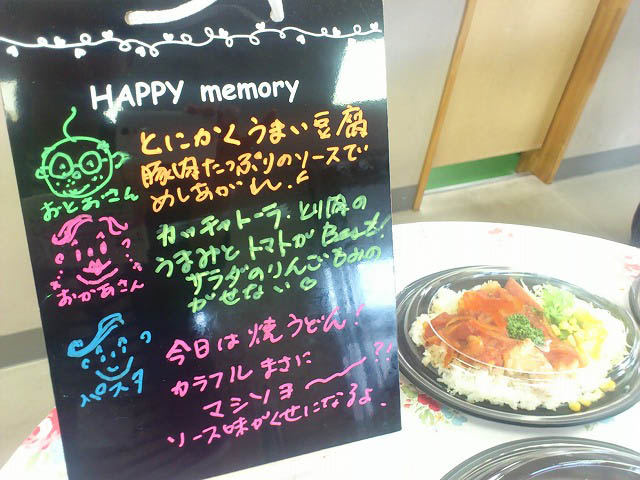 HAPPY memory
とにかくうまい豆腐
豚肉たっぷりのソースで
めしあがれ!
おとおさん
カッチャトーラ・とり肉の
うまみとトマトがBest!
サラダのりんごもみの
がせない
おかあさん
今日は焼うどん!
カラフルまさに
マシソヨ〜?!
ソース味がくせになるよ
パスタ